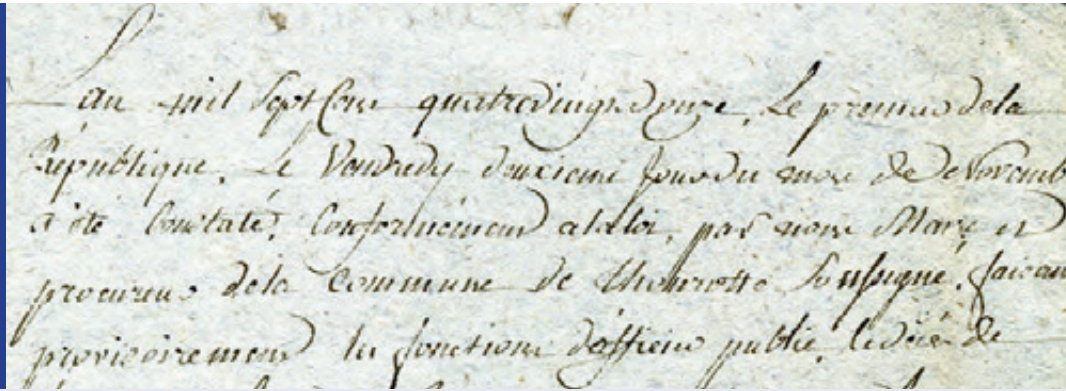 L'an mil Sept Cent quatrevingt douze, Le premier dela
République. Le Vendredy deuxieme Jour du mois de Novemb
a été Constaté, Conformément a la loi, par nous Maire et
procureur dela Commune de Soussigné, faisan
provisoirement les fonctions d'officier public, le décés de